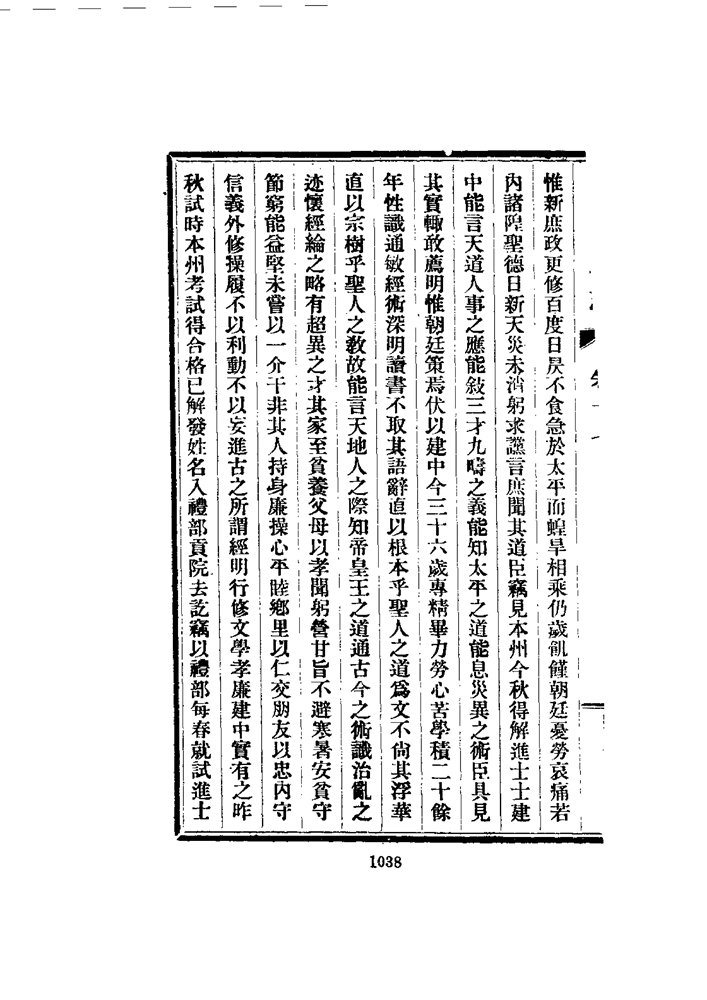 惟新庶政更修百度日昃不食急於太平而蝗旱相乘仍歲飢饉朝廷憂勞哀痛若
內諸隍聖德日新天災未消躬求讜言庶聞其道臣竊見本州今秋得解進士士建
中能言天道人事之應能敍三才九疇之義能知太平之道能息災異之術臣具見
其實輙敢薦明惟朝廷策焉伏以建中今三十六歲專精畢力勞心苦學積二十餘
年性識通敏經術深明讀書不取其語辭直以根本乎聖人之道爲文不尙其浮華
直以宗樹乎聖人之敎故能言天地人之際知帝皇王之道通古今之術識治亂之
迹懷經綸之略有超異之才其家至貧養父母以孝聞躬營甘旨不避寒暑安貧守
節窮能益堅未嘗以一介干非其人持身廉操心平睦鄉里以仁交朋友以忠內守
信義外修操履不以利動不以妄進古之所謂經明行修文學孝廉建中實有之昨
秋試時本州考試得合格已解發姓名入禮部貢院去訖竊以禮部每春就試進士
1038